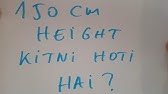 150 CM
HEIGHT
KITNI HOTI
HAI?